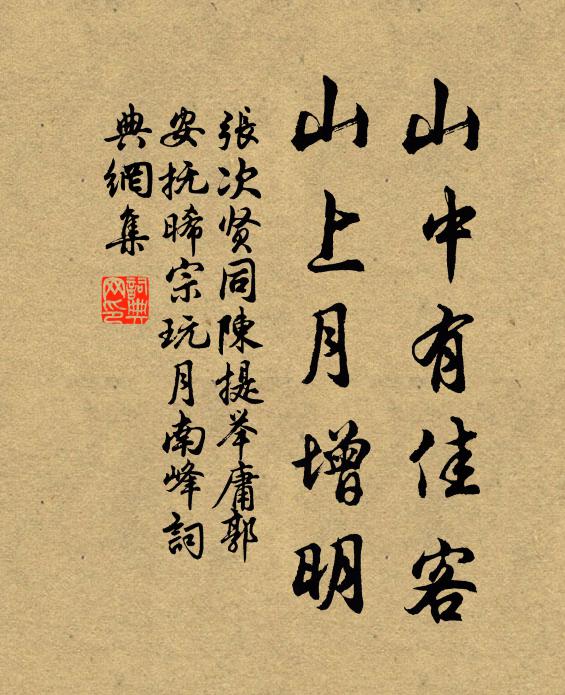 山中有佳客
山上月增明
張次贤同陳提举庸郭
安抚晞宗玩月南峰詞
典網集
詞典网印